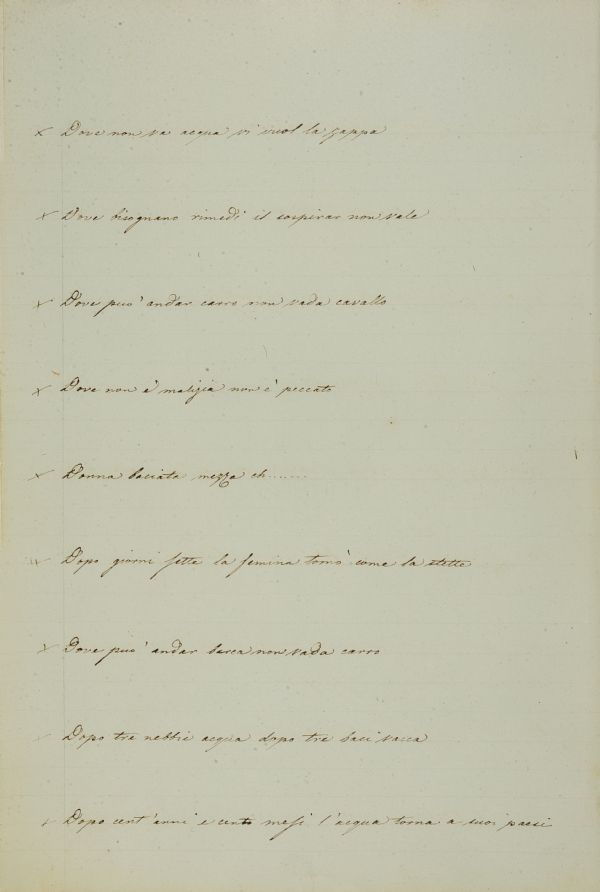 × Dove non va acqua vi vuol la zappa
× Dove bisognano rimedi il sospirar non vale
× Dove puo' andar carro non vada cavallo
× Dove non è malizia non è peccato
× Donna baciata mezza ch.......
Dopo giorni sette la femina tornò come la stette
× Dove può andar barca non vada carro
Dopo tre nebbie acqua dopo tre baci vacca
Dopo cent'anni e cento mesi l'acqua torna a suoi paesi